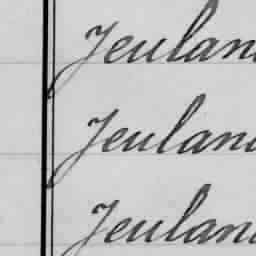 Jeuland
Jeuland
Jeuland